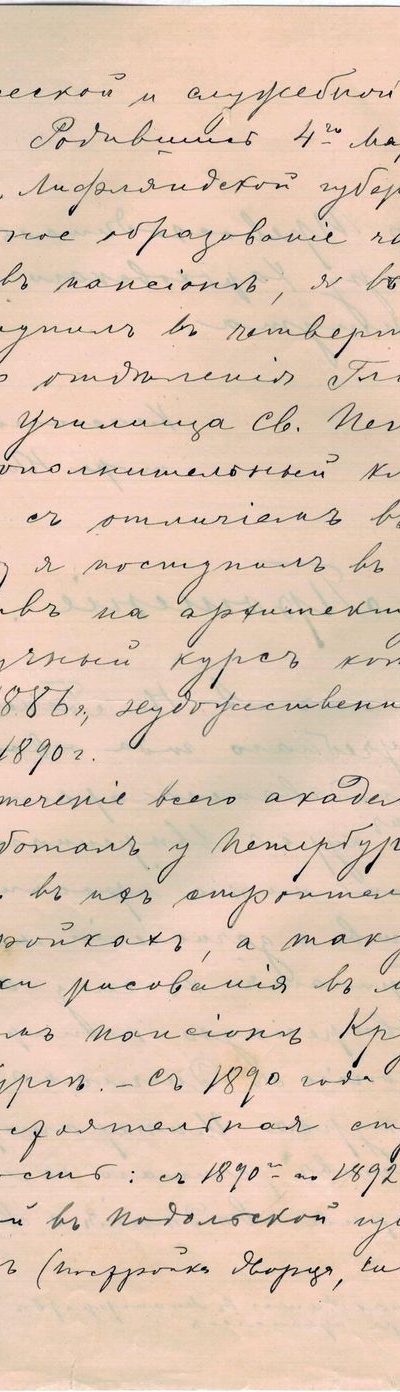 ческой и служебной
Родившись 4го ма
Лифляндской губер
ное образованіе
въ пансіонѣ, я въ
тупилъ въ четверт
отдѣленія Гла
Училища Св. Пет
ополнительный кл
съ отличіемъ въ
я поступилъ въ
въ на архитект
учный курсъ
1886 г., художествен
1890 г.
теченіе всего акаде
боталъ у Петербур
въ ихъ строител
ройкахъ, а так
ки рисованія въ
пансіонѣ Кр
ургѣ. – Съ 1890 года
остоятельная
ость: съ 1890го по 1892
й въ Подольской гу
ъ (постройка дворца,